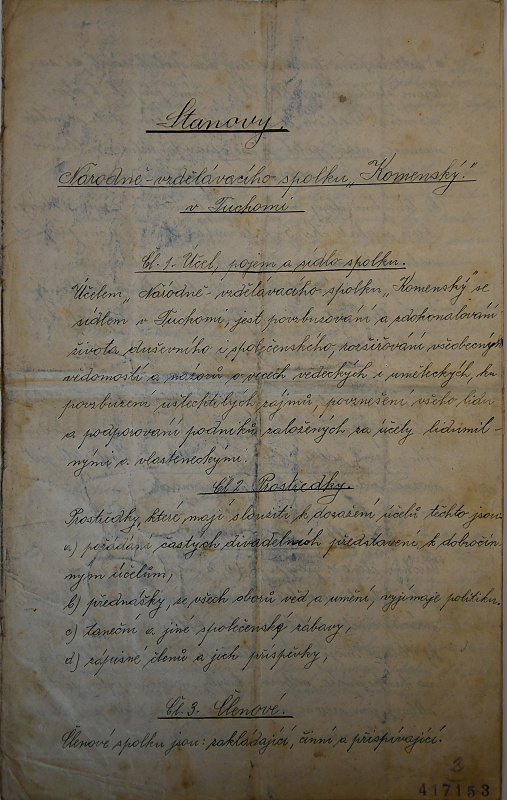 Stanovy.
Národně-vzdělávacího spolku „Komenský."
v Tuchomi
Čl. 1. Účel, pojem a sídlo spolku.
Účelem „Národně-vzdělávacího spolku „Komenský" se
sídlem v Tuchomi, jest povzbuzování a zdokonalování
života duševního i společenského, rozšiřování všeobecných
vědomostí a názorů o věcech vědeckých i uměleckých, ku
povzbuzení ušlechtilých zájmů, povznešení všeho lidu
a podporování podniků založených za účely lidumil-
nými a vlasteneckými.
Čl. 2. Prostředky.
Prostředky, které mají sloužiti k dosažení účelů těchto jsou:
a) pořádání častých divadelních představení k dobročin-
ným účelům,
b) přednášky, ze všech oborů věd a umění, vyjímaje politiku.
c) taneční a jiné společenské zábavy,
d) zápisné členů a jich příspěvky,
Čl. 3. Členové.
Členové spolku jsou: zakládající, činní a přispívající.
3
417153